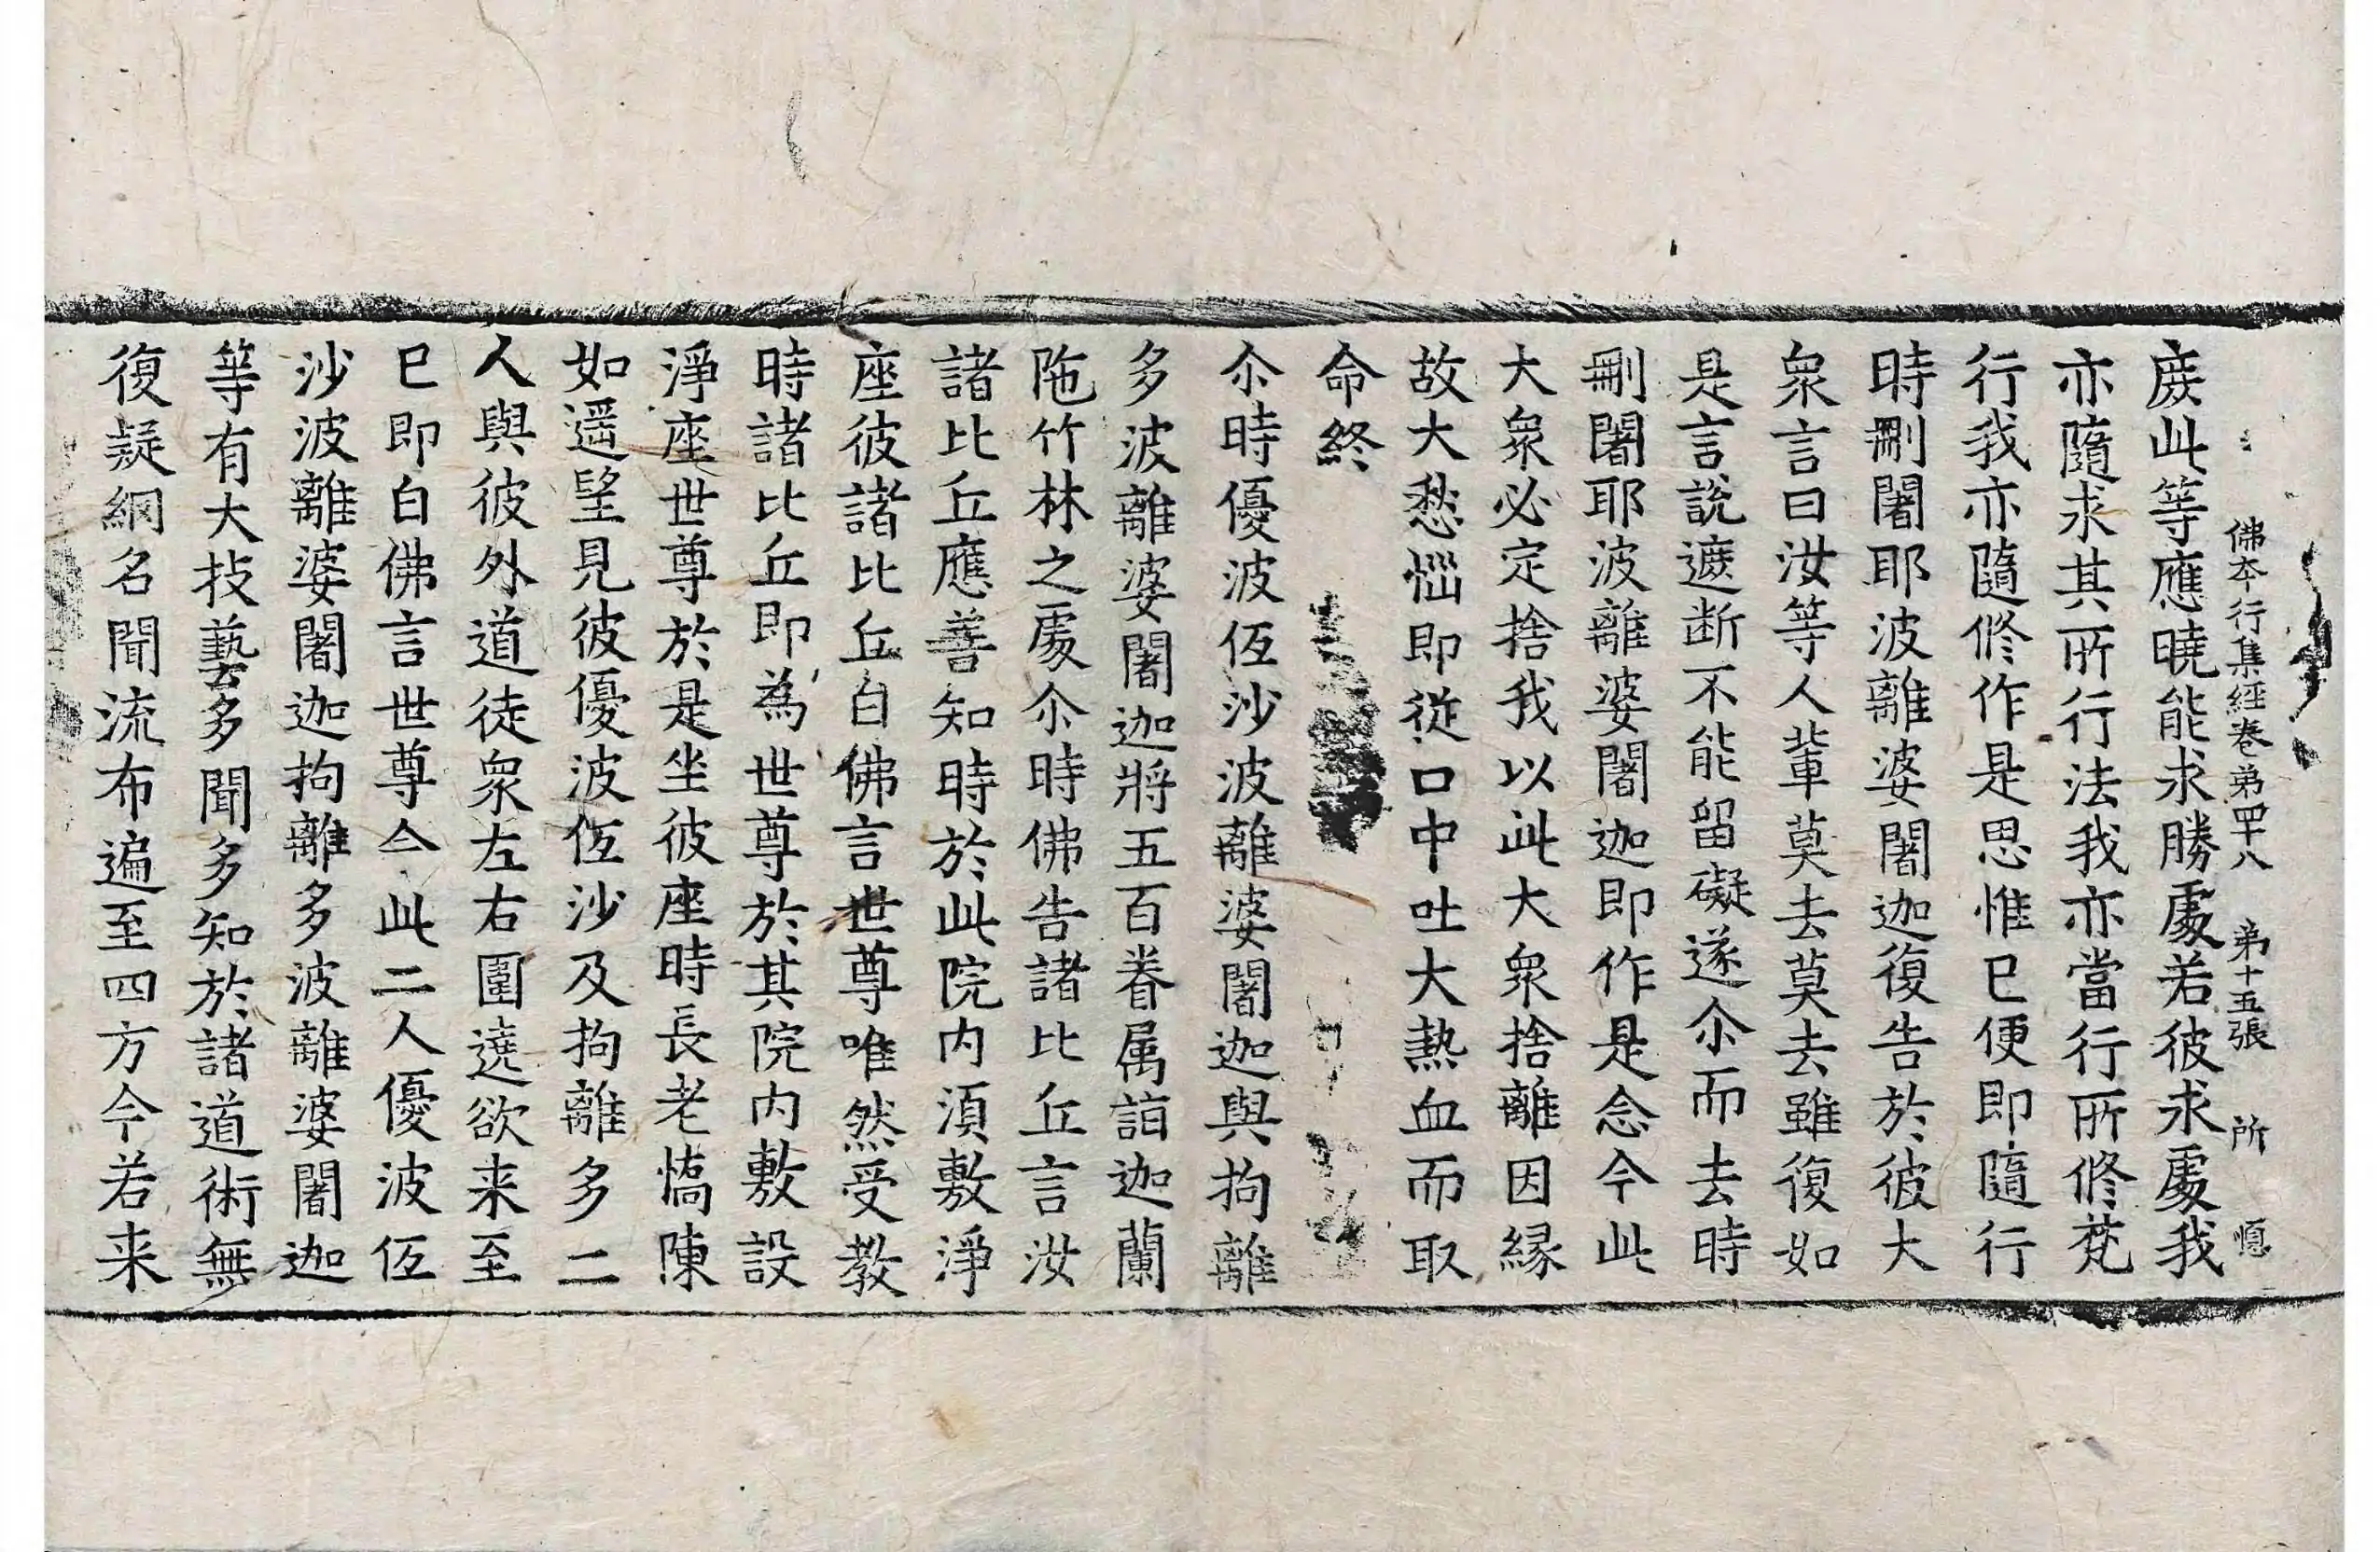 佛夲行集經卷弟四十八 弟十五張 所
䕻此等應曉能求勝䖏若彼求䖏我
亦隨求其所行法我亦當行所修梵
行我亦隨修作是思惟已便即隨行
時刪闍耶波離婆闍迦復告於彼大
衆言曰汝等人輩莫去莫去雖復如
是言說遮断不能留礙遂尒而去時
刪闍耶波離婆闍迦即作是念今此
大衆必定捨我以此大衆捨離因緣
故大愁惱即從口中吐大熱血而取
命終
尒時優波低沙波離婆闍迦與拘離
多波離婆闍迦將五百眷属詣迦蘭
陁竹林之䖏尒時佛告諸比丘言汝
諸比丘應善知時於此院内湏敷淨
座彼諸比丘白佛言世尊唯然受教
時諸比丘即為世尊於其院内敷設
淨座世尊於是坐彼座時長老憍陳
如遥望見彼優波低沙及拘離多二
人與彼外道徒衆左右圍遶欲来至
已即白佛言世尊今此二人優波低
沙波離婆闍迦拘離多波離婆闍迦
等有大技藝多聞多知於諸道術無
復疑網名聞流布遍至四方今若来